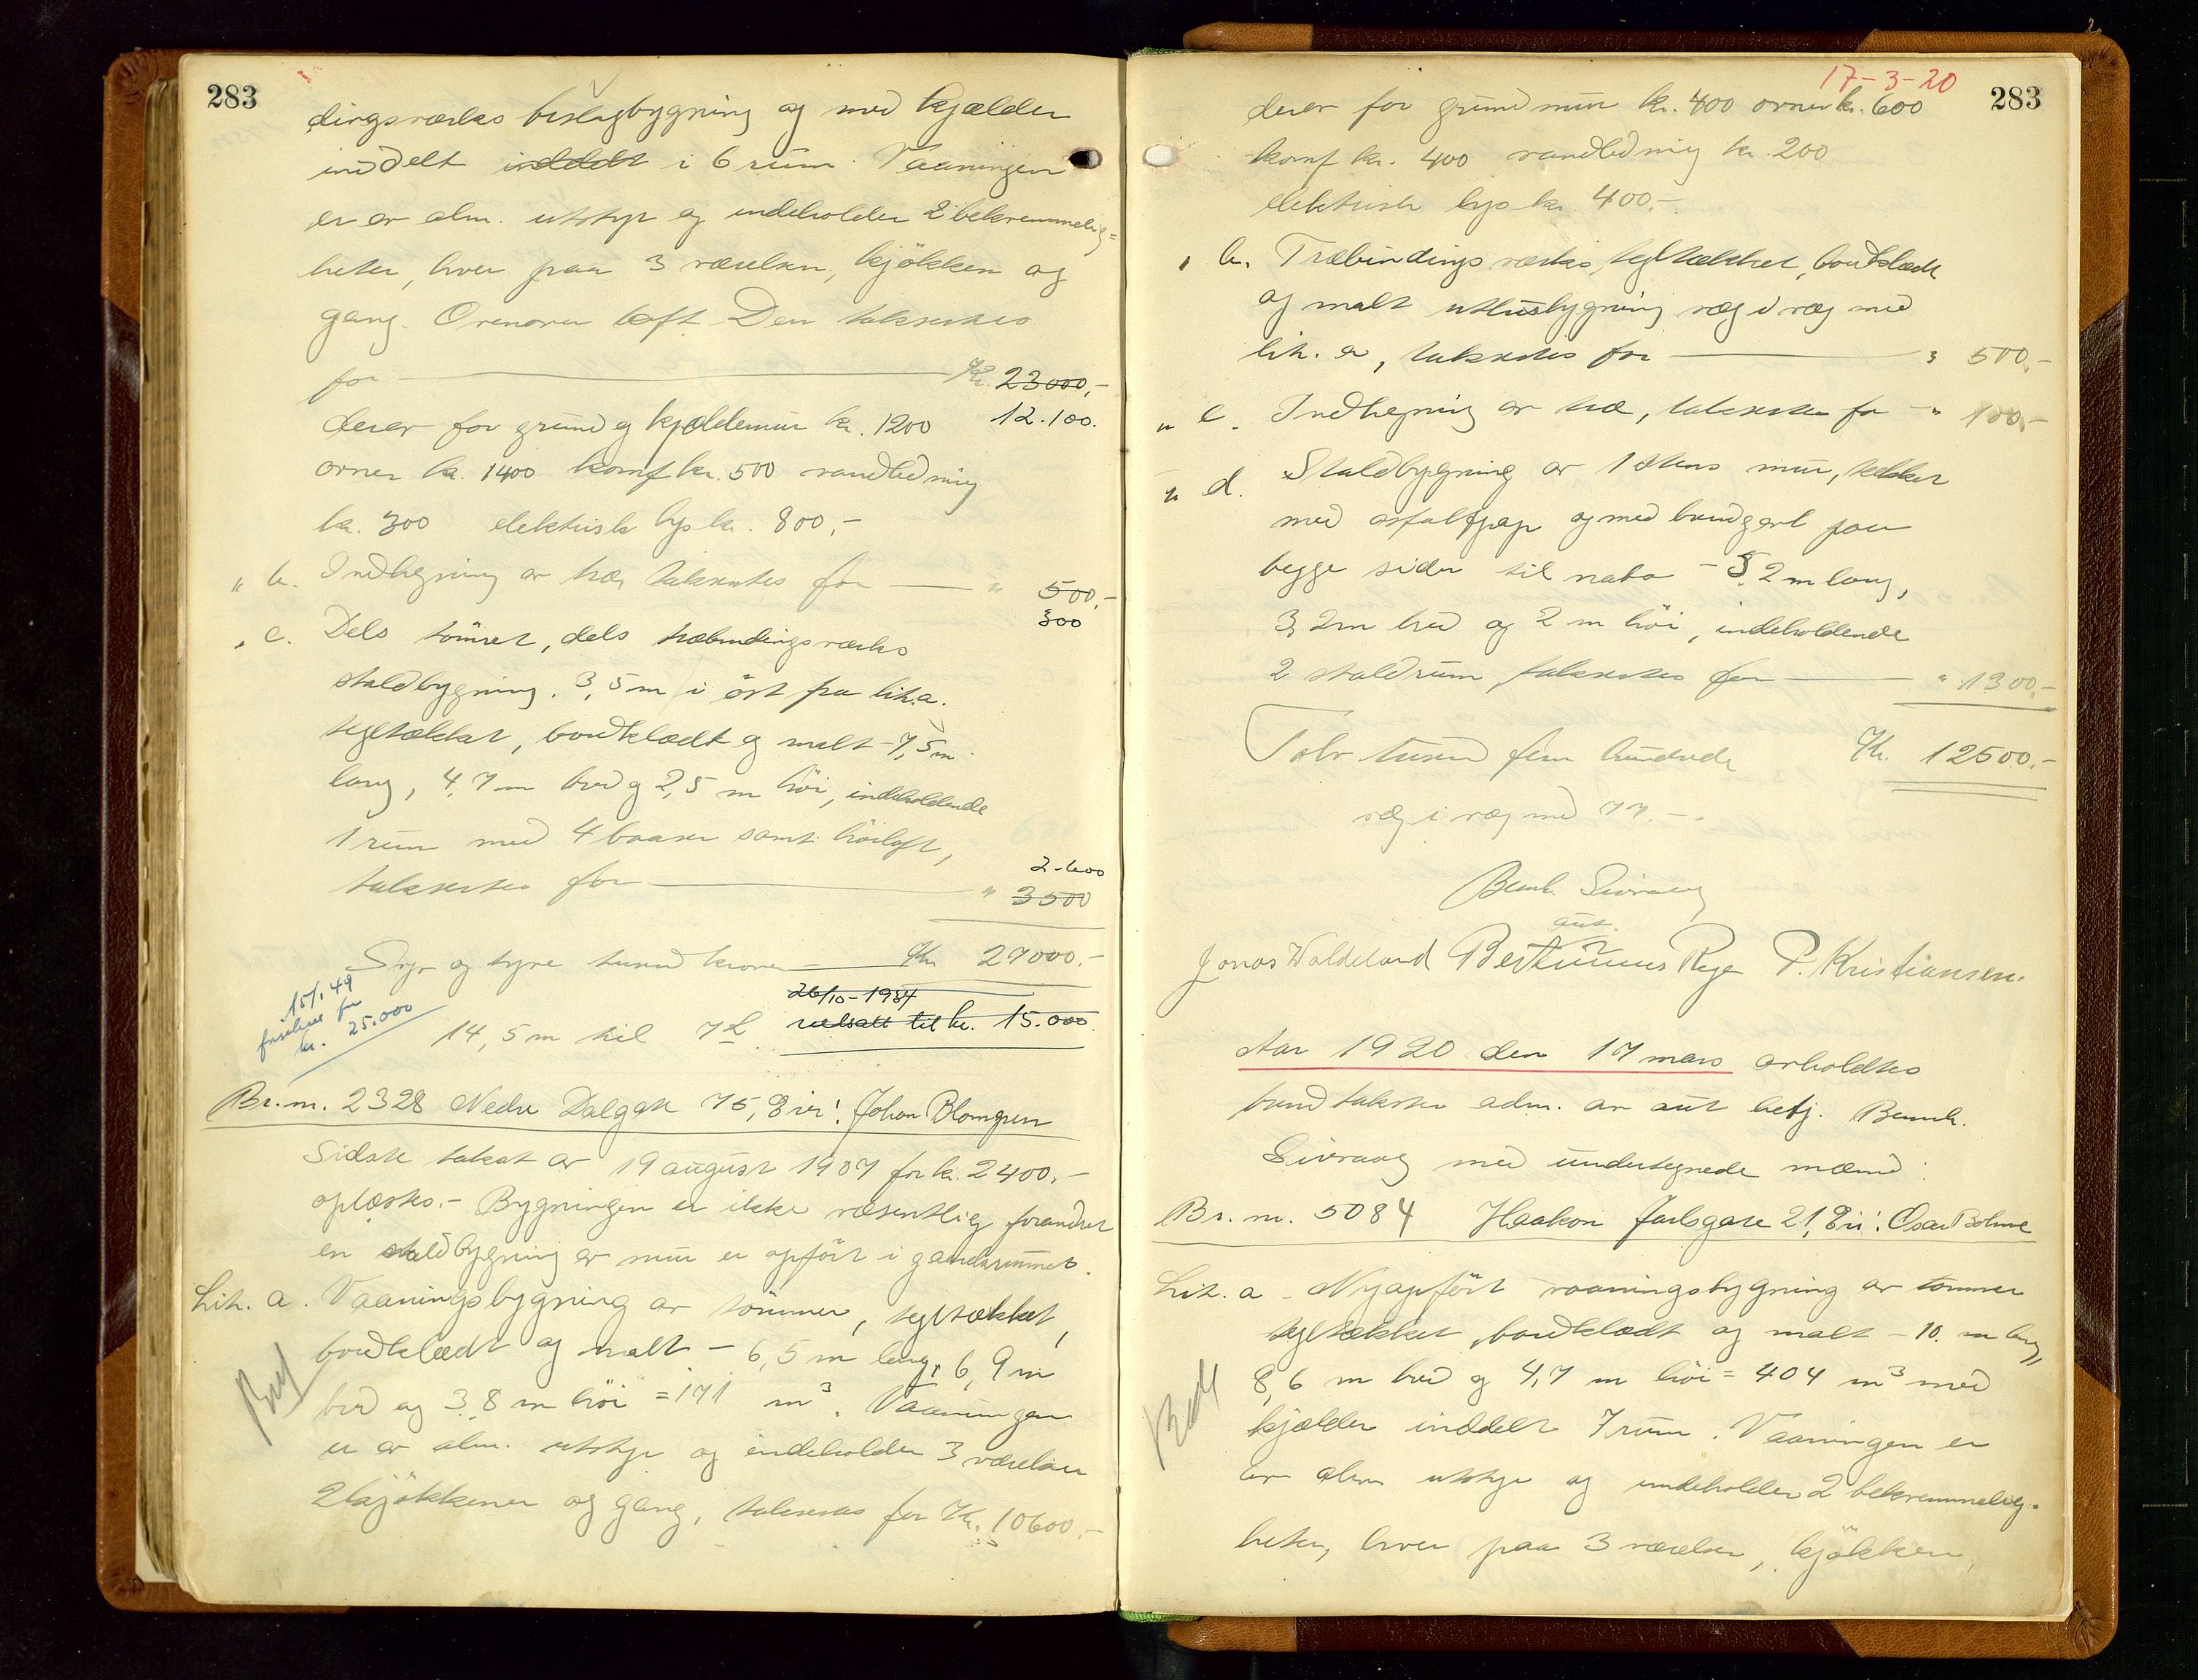 283
dingsverks beslagbygning og med kjælder
inddelt inddelt i 6 rum. Vaaningen
er av alm. utstyr og indeholder 2 bekvemmelig=
heter, hver paa 3 værelser, kjökken og
gang. Ovenover loft Den takseres
for Kr. 23000,-
12.100.
derav for grund og kjældermur kr. 1200
ovner kr. 1400 komf kr. 500 vandledning
kr. 300 elektrisk lys kr. 800,-
" b. Indhegning av træ, takseres for " 500,-
300
" c. Dels tömret, dels træbindingsverks
staldbygning. 3,5 m i öst fra lit. a.
tegltækket, bordklædt og malt - 7,5 m
lang, 4,7 m bred og 2,5 m höi, indeholdende
1 rum med 4 baaser samt höiloft,
2.600
takseres for " 3500
Syv og tyve tusind kroner Kr. 27000.-
26/10-1934
nedsatt til kr. 15.000
15/1 49
forsikret for
kr. 25.000
14,5 m til 72
Br. nr. 2328 Nedre Dalgate 75, Eier: Johan Blomgren
Sidste takst av 19 august 1907 for kr. 2400.-
oplæstes.- Bygningen er ikke væsentlig forandret
en staldbygning av mur er opfört i gaardsrummet.
Lit. a. Vaaningsbygning av tömmer, tegltækket,
bordklædt og malt - 6,5 m lang, 6,9 m
bred og 3,8 m höi = 171 m³. Vaaningen
er av alm. utstyr og indeholder 3 værelser
2 kjökkener og gang, takseres for Kr. 10600.-
17-3-20
283
derav for grundmur kr. 400 ovner kr. 600
komf kr. 400 vandledning kr. 200
elektrisk lys kr. 400.-
" b. Træbindingsverks, tegltækket, bordklædt
og malt uthusbygning væg i væg med
lit. a, takseres for " 500.-
" c. Indhegning av træ, takseres for " 100.-
" d. Staldbygning av 1 stens mur, tækket
med asfaltpap og med brandgavl paa
begge sider til nabo - 5,2 m lang,
3,2 m bred og 2 m höi, indeholdende
2 staldrum, takseres for " 1300.-
Tolv tusind fem hundrede Kr. 12500.-
væg i væg med 77.-
Bernh. Sivraag
aut.
Jonas Waldeland Berthinius Rege P. Kristiansen.
Aar 1920 den 17 mars avholdtes
brandtakster adm. av aut befj. Bernh.
Sivraag med undertegnede mænd:
Br. nr. 5084 Haakon Jarlsgate 21, Eier: Oscar Bohne
Lit. a. Nyopfört vaaningsbygning av tömmer
tegltækket, bordklædt og malt - 10. m lang,
8,6 m bred og 4,7 m höi = 404 m³ med
kjælder inddelt 7 rum. Vaaningen er
av alm utstyr og indeholder 2 bekvemmelig-
heter, hver paa 3 værelser, kjökken,